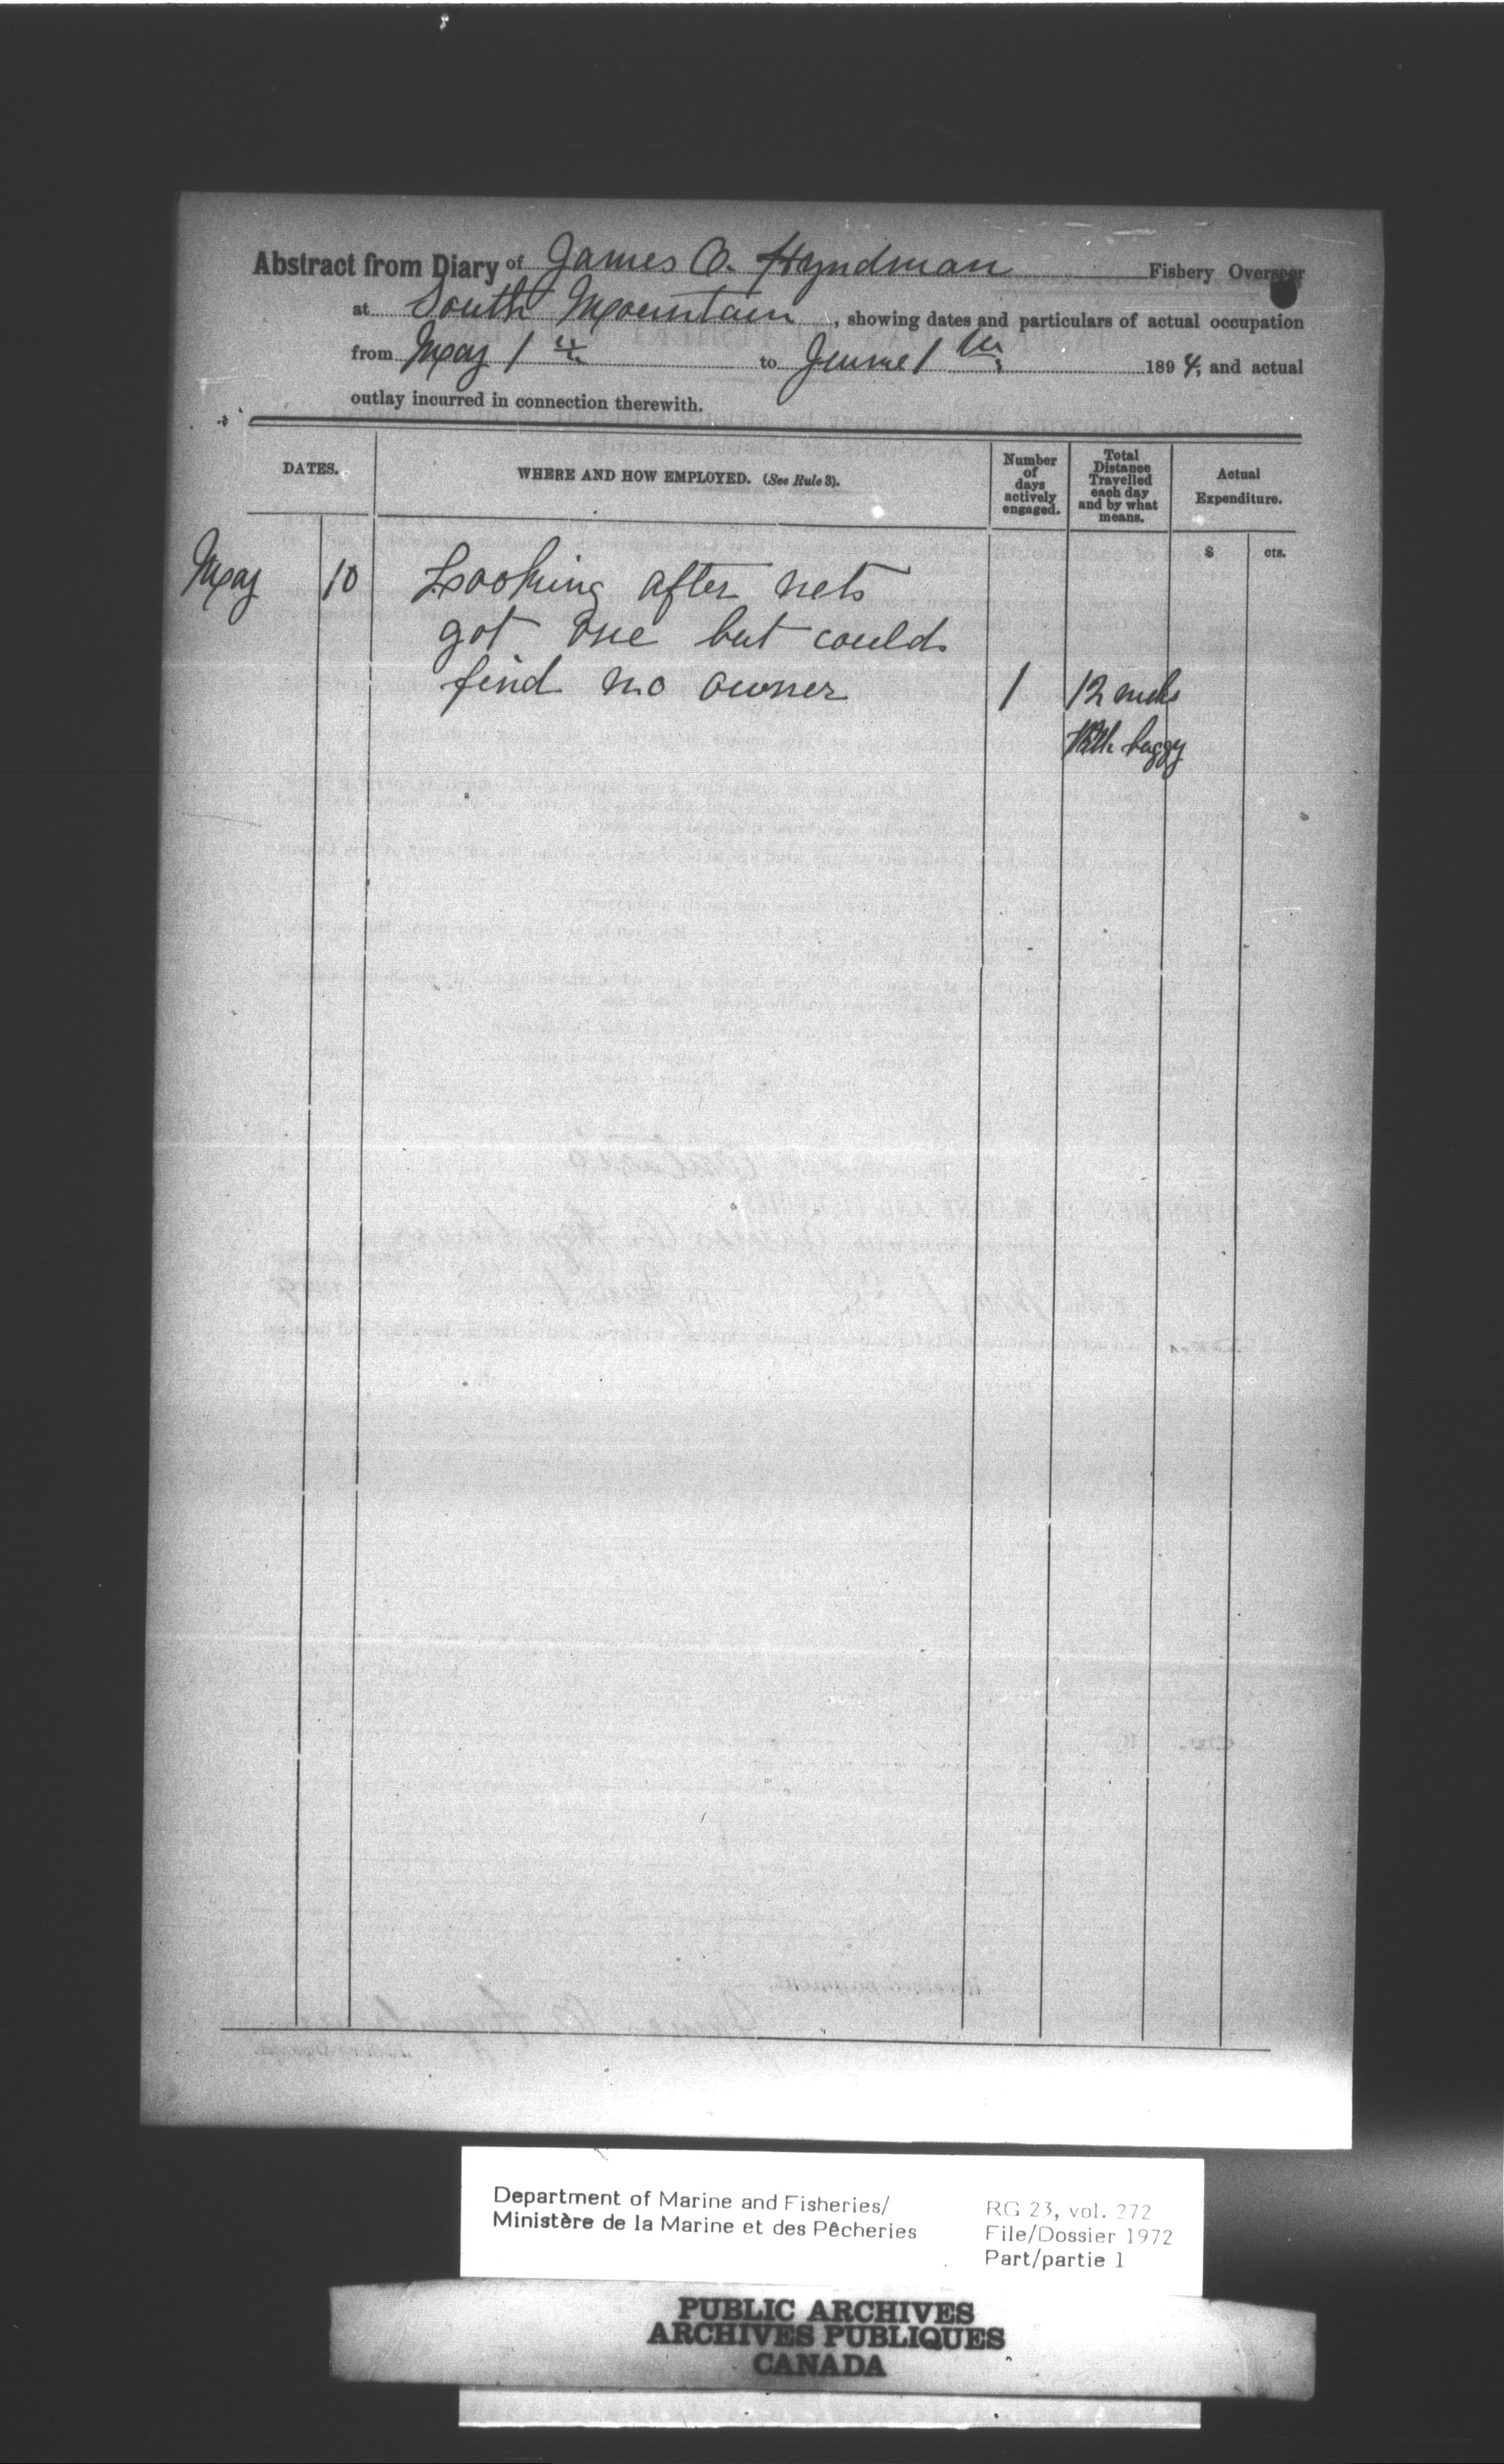 Abstract from Diary of James A. Hyndman Fishery Overseer
at South Mountain, showing dates and particulars of actual occupation
from May 1 to June 1 1894, and actual
outlay incurred in connection therewith.
DATES.
WHERE AND HOW EMPLOYED. (See Rule 3).
Number of days actively engaged.
Total Distance Travelled each day and by what means.
Actual Expenditure.
$ cts.
May 10 Looking after nets
got one but could
find no owner 1 12 miles
With buggy
Department of Marine and Fisheries/
Ministère de la Marine et des Pêcheries
RG 23, vol. 272
File/Dossier 1972
Part/partie 1
PUBLIC ARCHIVES
ARCHIVES PUBLIQUES
CANADA